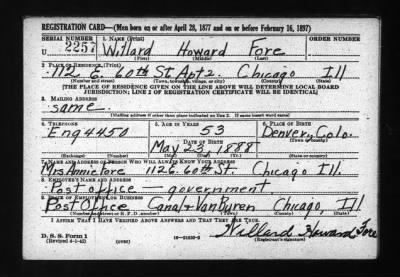 REGISTRATION CARD—(Men born on or after April 28, 1877 and on or before February 16, 1897)
SERIAL NUMBER 1. NAME (Print) ORDER NUMBER
U 2257 Willard Howard Fore
(First) (Middle) (Last)
2. PLACE OF RESIDENCE (Print)
112 E. 60th St. Apt 2. Chicago Ill
(Number and street) (Town, township, village, or city) (County) (State)
[THE PLACE OF RESIDENCE GIVEN ON THE LINE ABOVE WILL DETERMINE LOCAL BOARD
JURISDICTION; LINE 2 OF REGISTRATION CERTIFICATE WILL BE IDENTICAL]
3. MAILING ADDRESS
same.
[Mailing address if other than place indicated on line 2. If same insert word same]
4. TELEPHONE 5. AGE IN YEARS 6. PLACE OF BIRTH
Eng 4450 53 Denver, Colo.
DATE OF BIRTH (Town or county)
May 23, 1888
(Exchange) (Number) (Mo.) (Day) (Yr.) (State or country)
7. NAME AND ADDRESS OF PERSON WHO WILL ALWAYS KNOW YOUR ADDRESS
Mrs Annie Fore 112 E. 60th St. Chicago Ill.
8. EMPLOYER'S NAME AND ADDRESS
Post office — government
9. PLACE OF EMPLOYMENT OR BUSINESS
Post Office Canal & Van Buren Chicago Ill
(Number and street or R. F. D. number) (Town) (County) (State)
I AFFIRM THAT I HAVE VERIFIED ABOVE ANSWERS AND THAT THEY ARE TRUE.
D. S. S. Form 1
(Revised 4-1-42) (over) Willard Howard Fore
(Registrant's signature)